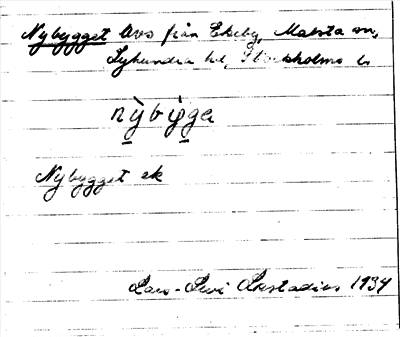 Nybygget Avs från Ekeby, Malsta sn,
Lyhundra hd, Stockholms l.
nỳbỳgge
Nybygget ek
Lars-Levi Læstadius 1934